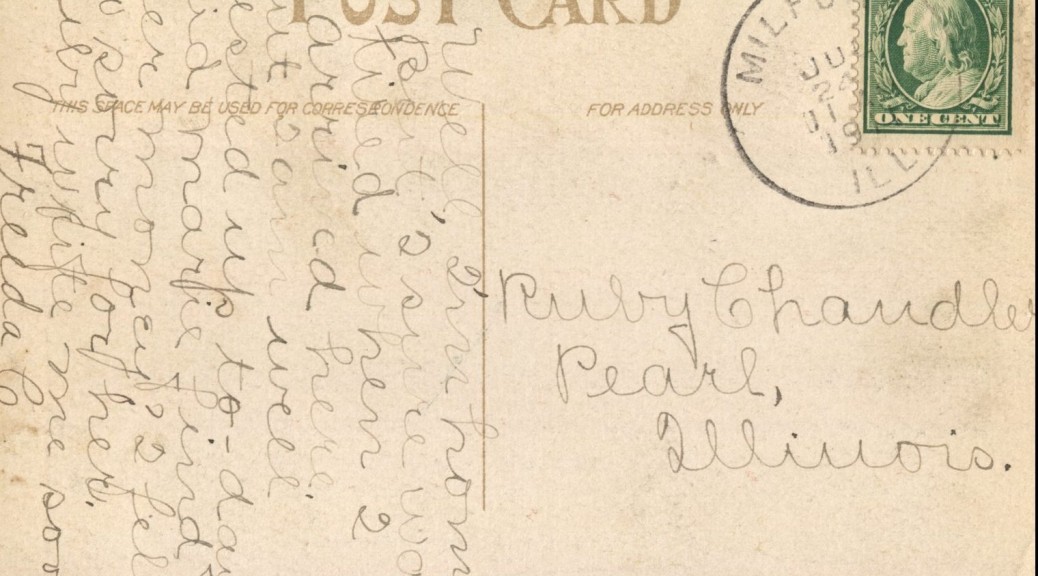 POST CARD
THIS SPACE MAY BE USED FOR CORRESPONDENCE
FOR ADDRESS ONLY
MILFO
JU
ILL
ONE CENT
Well I'm hom
But sure wo
tired when I
arrived here
ut am well
ested up to-da
id marje find
er money? I fel
o sorry for her.
uby write me soo
Freda C
Ruby Chandler
Pearl,
Illinois.